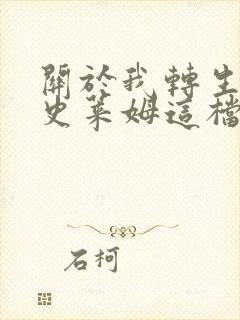 關於我轉生
史萊姆這檔
石柯